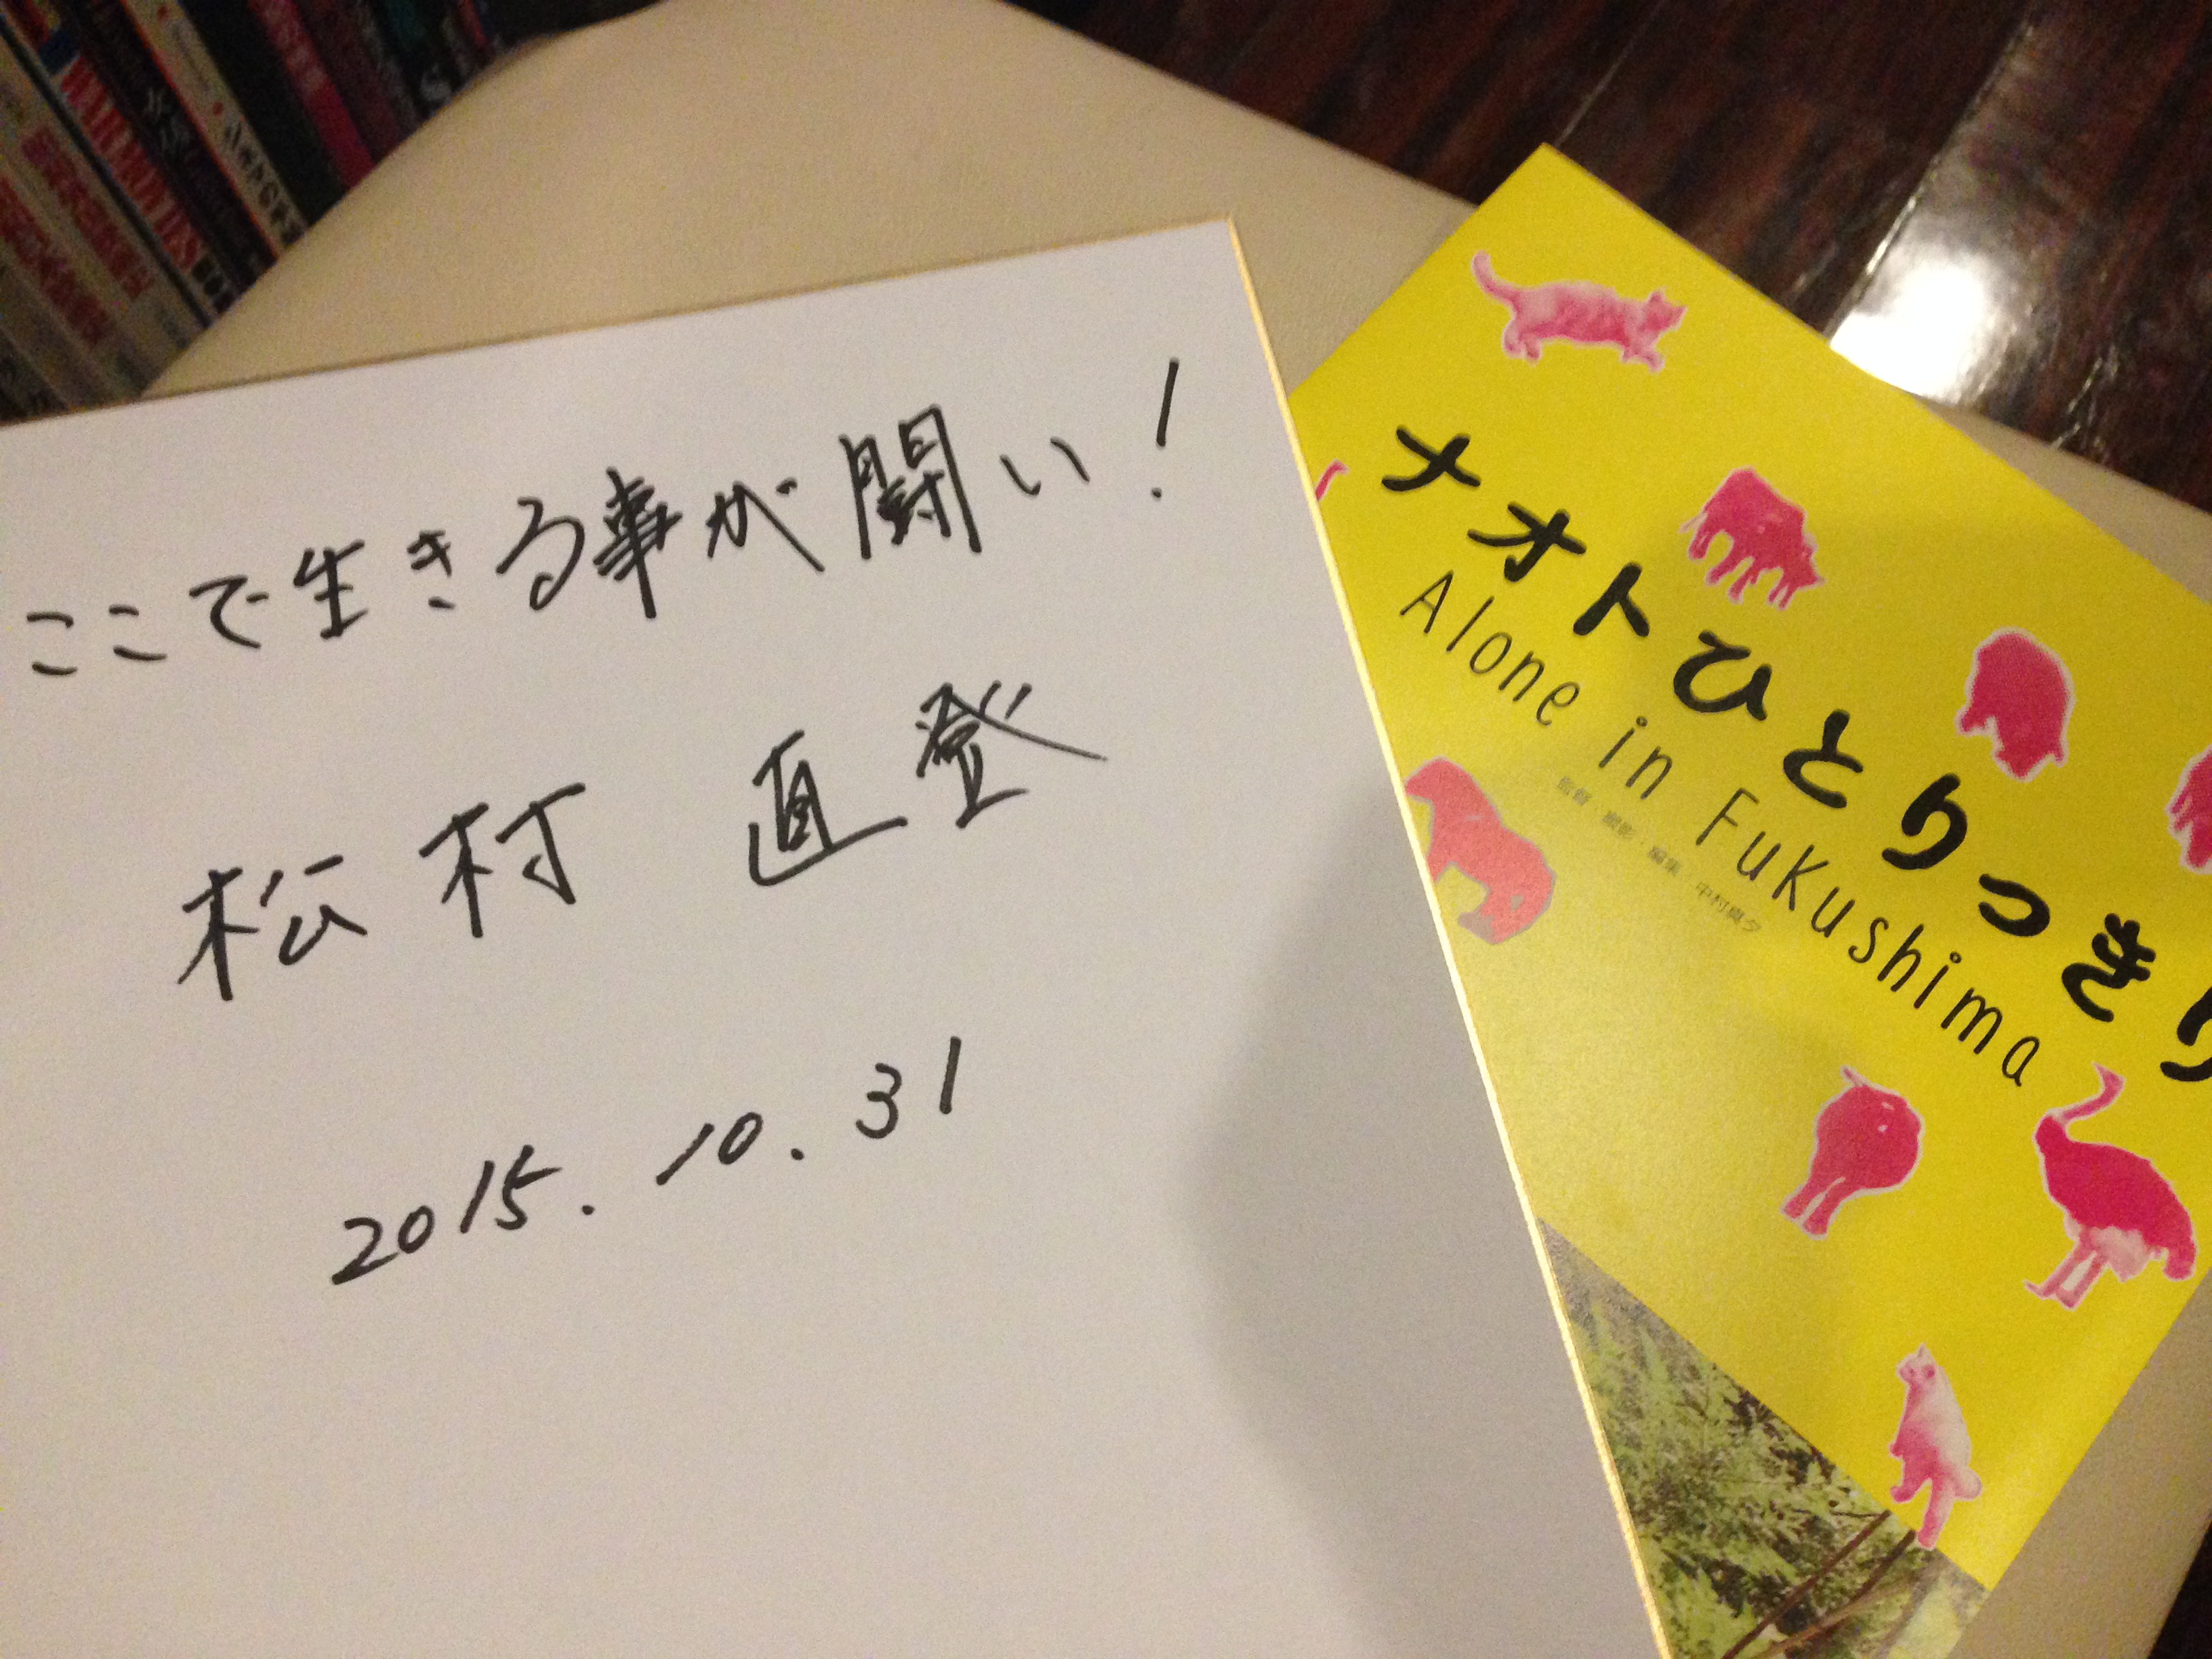 ここで生きる事が闘い!
松村 直登
2015.10.31
ナオトひとりっきり
Alone in Fukushima
監督・撮影・編集 中村真夕